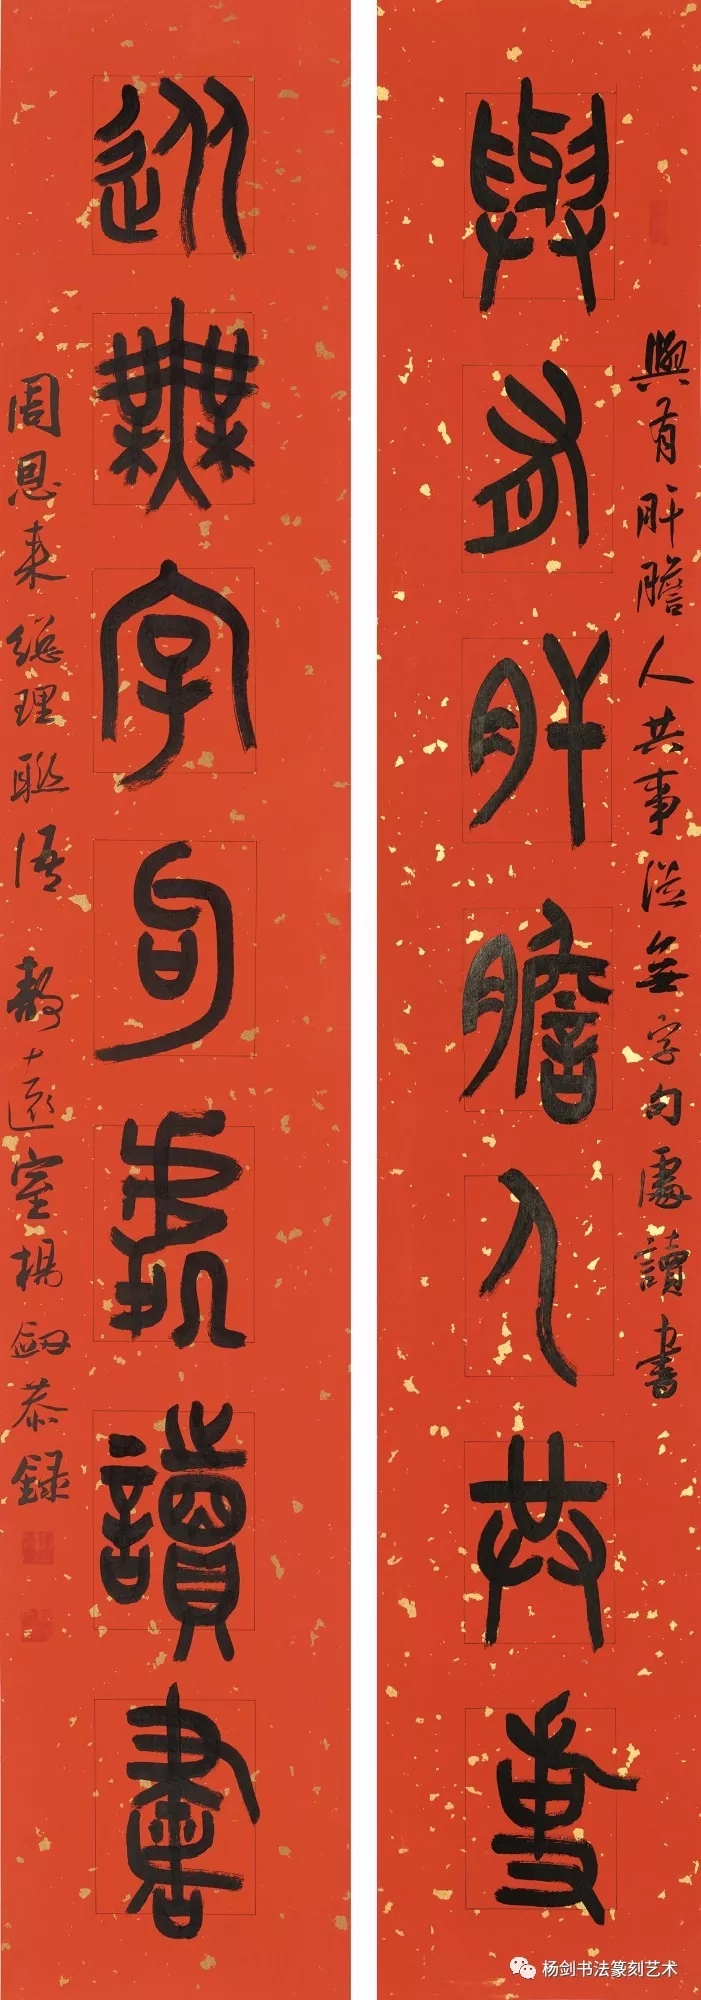 與有肝膽人共事
與有肝膽人共事從無字句處讀書
從無字句處讀書
周恩来總理聯語 静遠室楊劍恭録
杨剑书法篆刻艺术